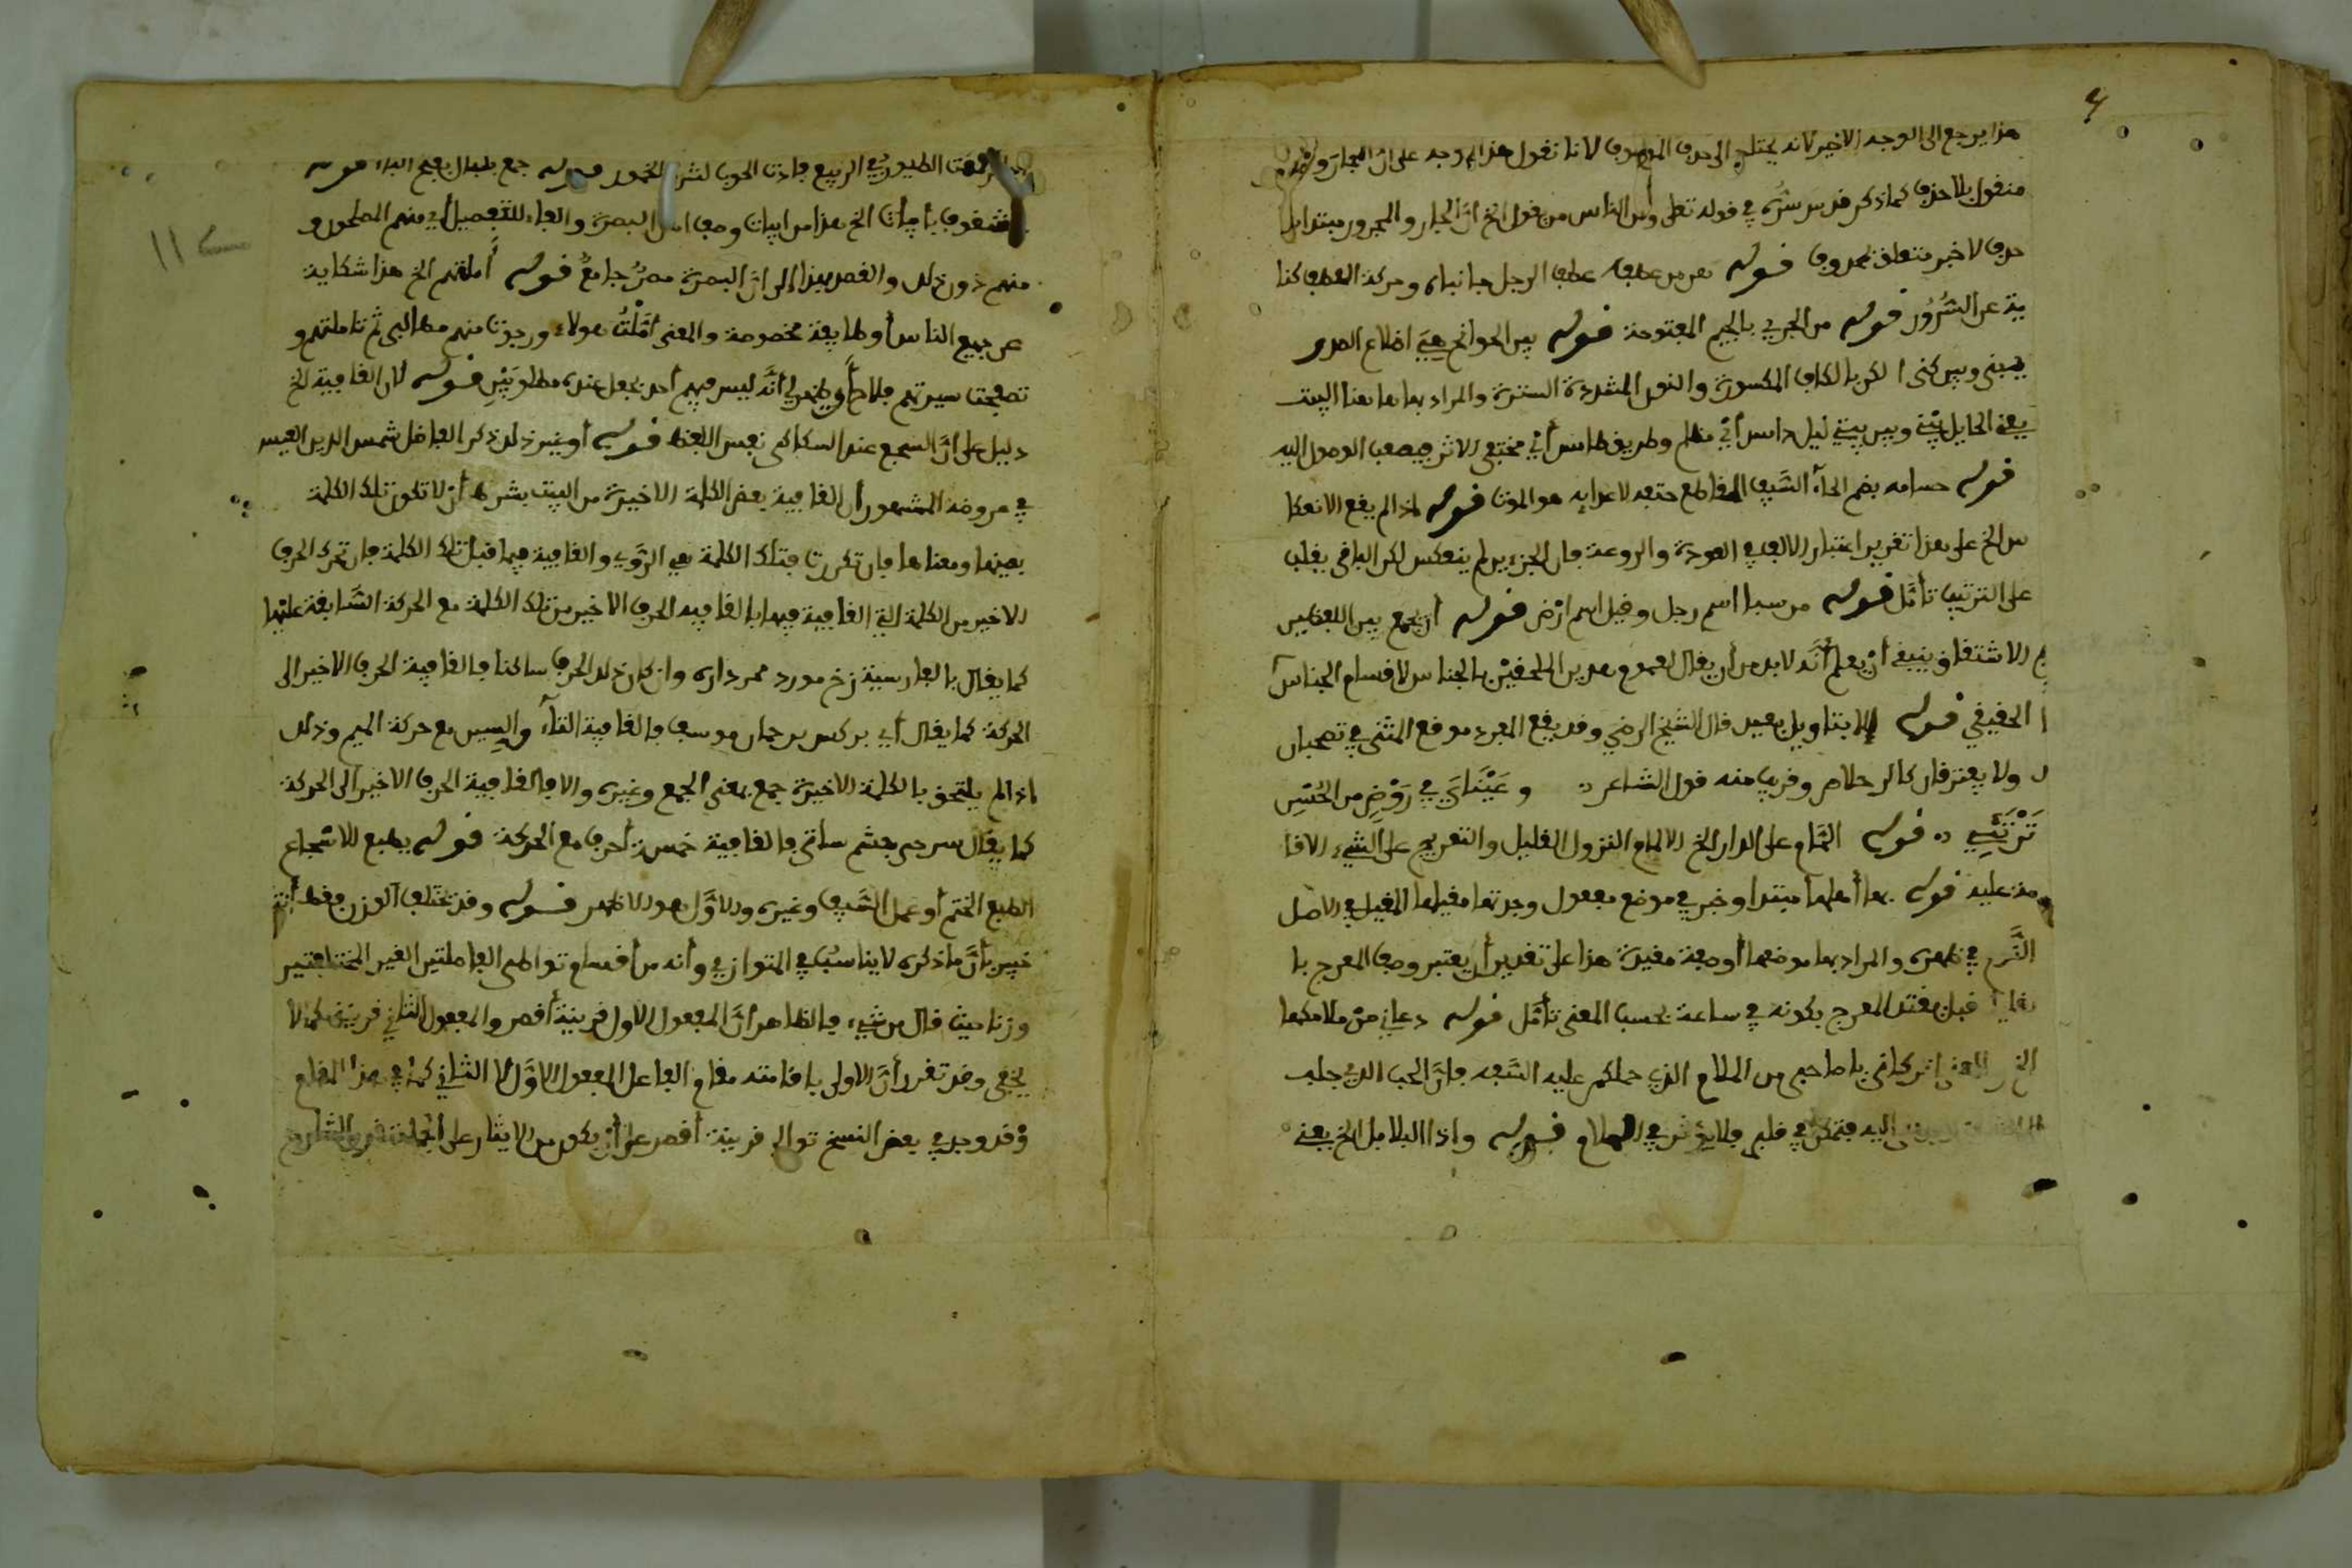 هذا يرجع الى الوجه الاخير لانه يحتاج الى حذف الموصوف لانا نقول هذا الوجه على ان المجاز
منقول بلا حذف كما ذكر قدس سره في قوله تعلى ومن الناس من يقول الخ ان الجار والمجرور مبتدا بلا
حذف لا خبر متعلق بمحذوف قوله هز من عطفه عطف الرجل جانباه وحركة العطف كنا
ية عن السُّرُور قوله من الجري بالجيم المفتوحة قوله بين الجوانح هِيَ اضلاع الصدر
بيني وبين كنى الكن بالكاف المكسورة والنون المشددة السترة والمراد بها هاهنا البيت
يعني الحايل بيني وبين بيتي ليل دامس أيْ مظلم وطريق طامس أيْ مختفى الاثر فيصعب الوصول اليه
قوله حسامه بضم الحآء السَّيف القاطع حتفه لاعدايه هو الموت قوله اذا لم يقع الانعكا
س الخ على هذا تقرير اعتبار الالف في العودة والروعة فان الجزءين لم ينعكس لكن الباقي بقلب
على الترتيب تأمَّل قوله من سبإ اسم رجل وقيل اسم ارْض قوله أن يجمع بين اللفظين
الاشتقاق ينبغي أنْ يعلم أنَّه لابد من أن يقال لعموم هذين الملحقيْن بالجناس لاقسام الجناس
الحقيقي قوله إلا بتاويل بعيد قال الشيخ الرضي وقد يقع المفرد موقع المثنى في تصحبان
ولا يفترقان كالرحلام وقريب منه قول الشاعر وعَيْنَايَ في رَوْضٍ من الحُسْنِ
تَرْتَعِي قوله المَّام على الدار الخ الالمام النزول القليل والتعريج على الشيء الاقا
مة عليه قوله بها أهلها مبتدا وخبر في موضع مفعول وجدتها مقيلها المقيل في الاصل
النَّوم في ظهره والمراد بها موضعها أوصفة مفيدة هذا على تقدير أن يعتبر وصف المعرج با
قبل مفتد المعرج بكونه في ساعة بحسب المعنى تأمَّل قوله دعاني منْ ملامكما
الخ المعنى اتركاني يا صاحبي من الملام الذي حملكم عليه السَّفه فانَّ الحب الذي جلب
اليه فتمكن في قلبي فلا يؤثر في الملام قوله واذا البلابل الخ يعني
الطيور في الربيع فادت الحوب لشرب الخمور قوله جمع بلبال بفتح الباء قوله
فمشغوف بأيات الخ هذا من ابيات وصف اهل البصرة والفاء للتفصيل أي منهم الصالحون و
منهم دون ذلك والقصر بهذا إلى انَّ البصرة مصرٌ جامعٌ قوله أملتهم الخ هذا شكاية
عن جميع الناس أو طايفة مخصوصة والمعنى أمَّلْتُ هولاء ورجوت منهم مطالبى ثم تاملتهم و
تصفحت سيرتهم فلاح وظهر لي أنَّه ليس فيهم أحد يحصل عنده مطلوبيْنِ قوله لان القافية الخ
دليل على انَّ السجع عند السكاكي نفس اللفظ قوله أو غير ذلك ذكر الفاضل شمس الدين القيس
في عروضه المشهور أن القافية بعض الكلمة الاخيرة من البيت بشرط أن لا تكون تلك الكلمة
بعينها ومعناها فان تكررت فتلك الكلمة هي الرَّوي والقافية فيها قبل تلك الكلمة فان تحرك الحرف
الاخير من الكلمة التي القافية فيها فالقافية الحرف الاخير من تلك الكلمة مع الحركة السَّابقة عليْها
كما يقال بالفارسية زخ مورد ممر داره وان كان ذلك الحرف ساكنا فالقافية الحرف الاخير الى
الحركة كما يقال أي بركس برجمان موست فالقافية التآء والسين مع حركة الميم وذلك
اذا لم يلحق بالكلمة الاخيرة جمع بمعنى الجمع وغيره والا فالقافية الحرف الاخير الى الحركة
كما يقال سرحى بجشم سأنى فالقافية خمسة أحرف مع الحركة قوله بطبع للاسْجاع
الطبع الختم أو عمل السَّيف وغيره والاوَّل هو الاظهر قوله وقد تختلف الوزن فقط أنت
خبير بأنَّ ما ذكره لا يناسبُ في المتوازي وأنه من أقسام تواطى الفاصلتين الغير المختلفتين
وزنا حيث قال من شيء فالظاهر أنَّ المفعول الاول قرينة أقصر والمفعول الثاني قرينته كما لا
يخفى وقد تقرر أنَّ الاولى باقامته مقام الفاعل المفعول الاوَّل لا الثاني كما في هذا المقام
وقد وجد في بعض النسخ توالى قرينة أقصر على أنْ يكون من الايثار على الجملة
١١٢